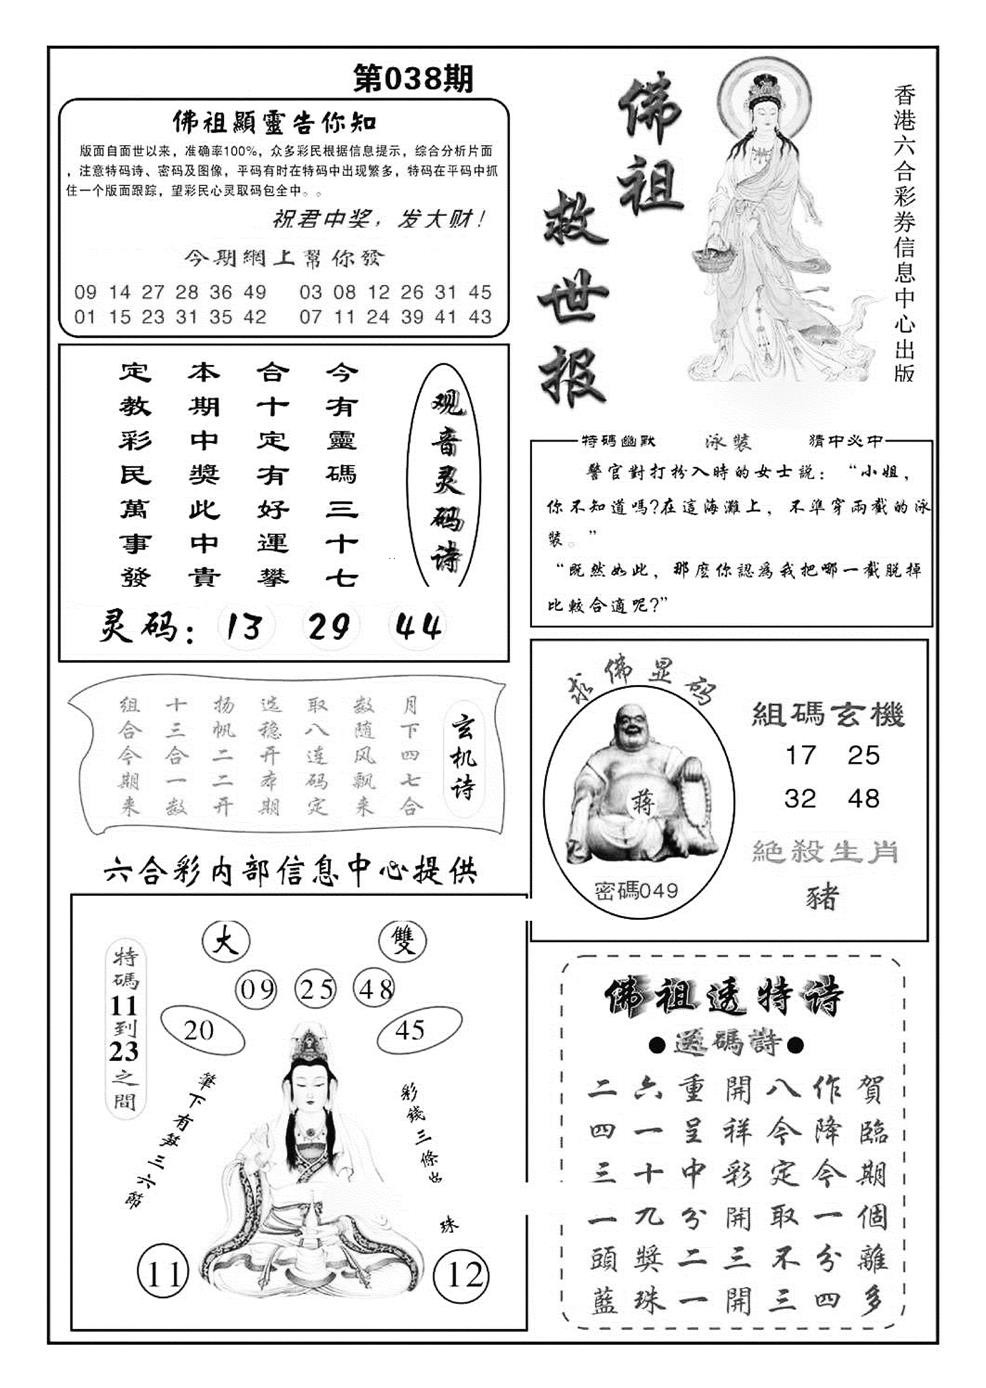 第038期
佛祖顯靈告你知
版面自面世以来，准确率100%，众多彩民根据信息提示，综合分析片面
，注意特码诗、密码及图像，平码有时在特码中出现繁多，特码在平码中抓
住一个版面跟踪，望彩民心灵取码包全中。。
祝君中奖，发大财！
今期網上幫你發
09 14 27 28 36 49 03 08 12 26 31 45
01 15 23 31 35 42 07 11 24 39 41 43
佛祖
救世报
香港六合彩券信息中心出版
观音灵码诗
今有靈碼三十七
合十定有好運攀
本期中獎此中貴
定教彩民萬事發
灵码：13 29 44
特碼幽默 泳裝 猜中必中
警官對打扮入時的女士説：“小姐，
你不知道嗎?在這海灘上，不準穿兩截的泳
裝。”
“既然如此，那麽你認爲我把哪一截脱掉
比較合適呢?”
玄机诗
月下四七合
数随风飘来
取八连码定
选稳开本期
扬帆二二开
十三合一数
组合今期来
六合彩内部信息中心提供
求佛显码
蒋
密碼049
組碼玄機
17 25
32 48
絶殺生肖
豬
特碼11到23之間
大 雙
09 25 48
20 45
筆下有夢三六節
彩錢三條出珠
11 12
佛祖透特诗
●送碼詩●
賀臨期個離多
作降今一分四
八今定取不三
開祥彩開三開
重呈中分二一
六一十九獎珠
二四三一頭藍